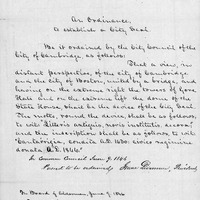 An Ordinance,
to establish a City Seal.
Be it ordained by the City Council of the
City of Cambridge, as follows.
That a view, in
distant perspective, of the city of Cambridge
and the city of Boston, united by a bridge, and
having on the extreme right the towers of Gore
Hall and on the extreme left the dome of the
State House, shall be the device of the City Seal.
The motto, round the device, shall be as follows,
to wit, "Literis antiquis, novis institutis, decora:"
and the inscription shall be as follows, to wit
"Cantabrigia, condita A.D. 1630: civica regimine
donata A.D. 1846."
In Common Council June 9, 1846
Passed to be ordained, Isaac Livermore, President
In Board of Aldermen, June 9, 1846